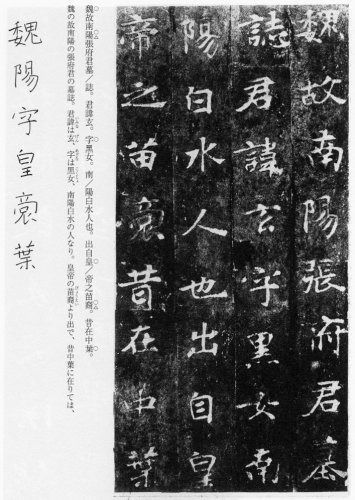 魏故南陽張府君墓
誌君諱玄字黑女南
陽白水人也出自皇
帝之苗裔昔在中葉
魏故南陽張府君墓／誌。君諱玄。字黑女。南／陽白水人也。出自皇／帝之苗裔。昔在中葉。
魏の故南陽の張府君の墓誌。君諱は玄、字は黑女、南陽白水の人なり。皇帝の苗裔より出で、昔中葉に在りては、
魏陽字皇裔葉